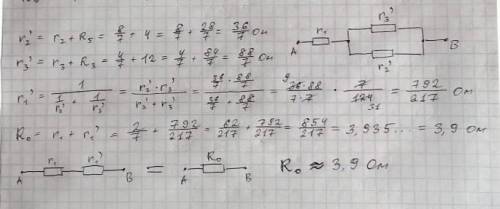 r₂' = r₂ + R₅ = 8/7 + 4 = 8/7 + 28/7 = 36/7 Ом
r₃' = r₃ + R₃ = 4/7 + 12 = 4/7 + 84/7 = 88/7 Ом
A r₁ r₃' r₂' B
r₁' = 1/(1/r₂' + 1/r₃') = r₂' · r₃'/(r₂' + r₃') = (36/7 · 88/7)/(36/7 + 88/7) = 9 36·88/7·7 · 7/124 31 = 792/217 Ом
R₀ = r₁ + r₁' = 2/7 + 792/217 = 62/217 + 792/217 = 854/217 = 3,935... = 3,9 Ом
A r₁ r₁' B = A R₀ B R₀ ≈ 3,9 Ом